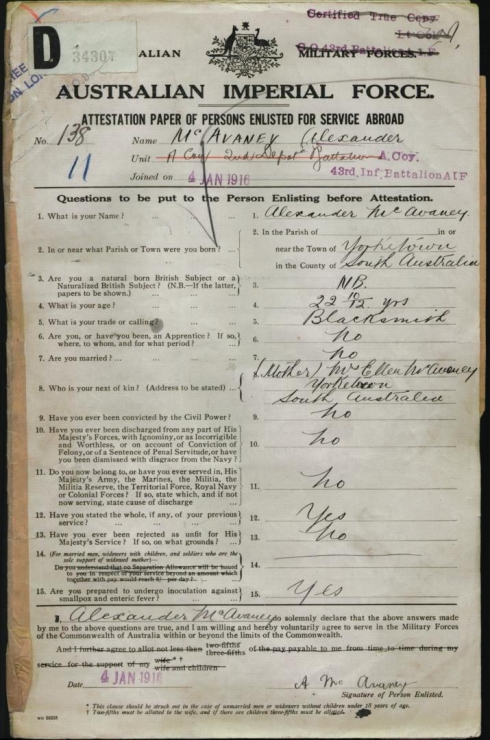 Certified True Copy
Lt Col
C.O. 43rd Battalion A.I.F.
D
34307
ALIAN MILITARY FORCES.
AUSTRALIAN IMPERIAL FORCE.
ATTESTATION PAPER OF PERSONS ENLISTED FOR SERVICE ABROAD
No. 138 Name McAvaney Alexander
11
Unit A Coy 2nd Depot Battalion A. Coy.
43rd. Inf. Battalion AIF
Joined on 4 JAN 1916
Questions to be put to the Person Enlisting before Attestation.
1. What is your Name? ... 1. Alexander McAvaney
2. In or near what Parish or Town were you born? ... 2. In the Parish of in or
near the Town of Yorketown
in the County of South Australia
3. Are you a natural born British Subject or a
Naturalized British Subject? (N.B.—If the latter,
papers to be shown.) 3. NB.
4. What is your age? ... 4. 22 10/12 yrs
5. What is your trade or calling? 5. Blacksmith
6. Are you, or have you been, an Apprentice? If so,
where, to whom, and for what period? ... 6. No
7. Are you married? ... 7. No
8. Who is your next of kin? (Address to be stated) ... 8. (Mother) Mrs Ellen McAvaney
Yorketown
South Australia
9. Have you ever been convicted by the Civil Power? 9. No
10. Have you ever been discharged from any part of His
Majesty's Forces, with Ignominy, or as Incorrigible
and Worthless, or on account of Conviction of
Felony, or of a Sentence of Penal Servitude, or have
you been dismissed with disgrace from the Navy? 10. No
11. Do you now belong to, or have you ever served in, His
Majesty's Army, the Marines, the Militia, the
Militia Reserve, the Territorial Force, Royal Navy
or Colonial Forces? If so, state which, and if not
now serving, state cause of discharge 11. No
12. Have you stated the whole, if any, of your previous
service? 12. Yes
13. Have you ever been rejected as unfit for His
Majesty's Service? If so, on what grounds? 13. No
14. (For married men, widowers with children, and soldiers who are the
sole support of widowed mother)—
Do you understand that no Separation Allowance will be issued
to you in respect of your service beyond an amount which
together with pay would reach 8/- per day? 14.
15. Are you prepared to undergo inoculation against
smallpox and enteric fever? 15. Yes
I, Alexander McAvaney do solemnly declare that the above answers made
by me to the above questions are true, and I am willing and hereby voluntarily agree to serve in the Military Forces
of the Commonwealth of Australia within or beyond the limits of the Commonwealth.
And I further agree to allot not less than two-fifths three-fifths of the pay payable to me from time to time during my
service for the support of my wife * † wife and children
Date 4 JAN 1916 A McAvaney
Signature of Person Enlisted.
* This clause should be struck out in the case of unmarried men or widowers without children under 18 years of age.
† Two-fifths must be allotted to the wife, and if there are children three-fifths must be allotted.